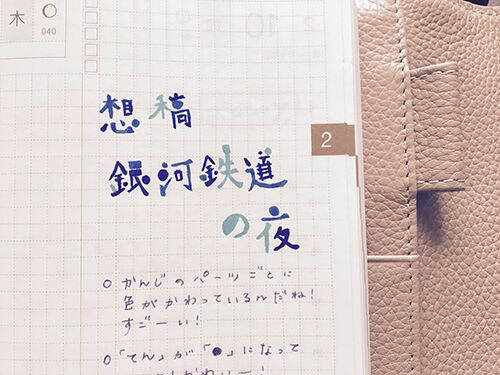 木
040
2
想稿
銀河鉄道
の夜
○かんじのパーツごとに
色がかわっているんだね!
すごーい!
○「てん」が「●」になって